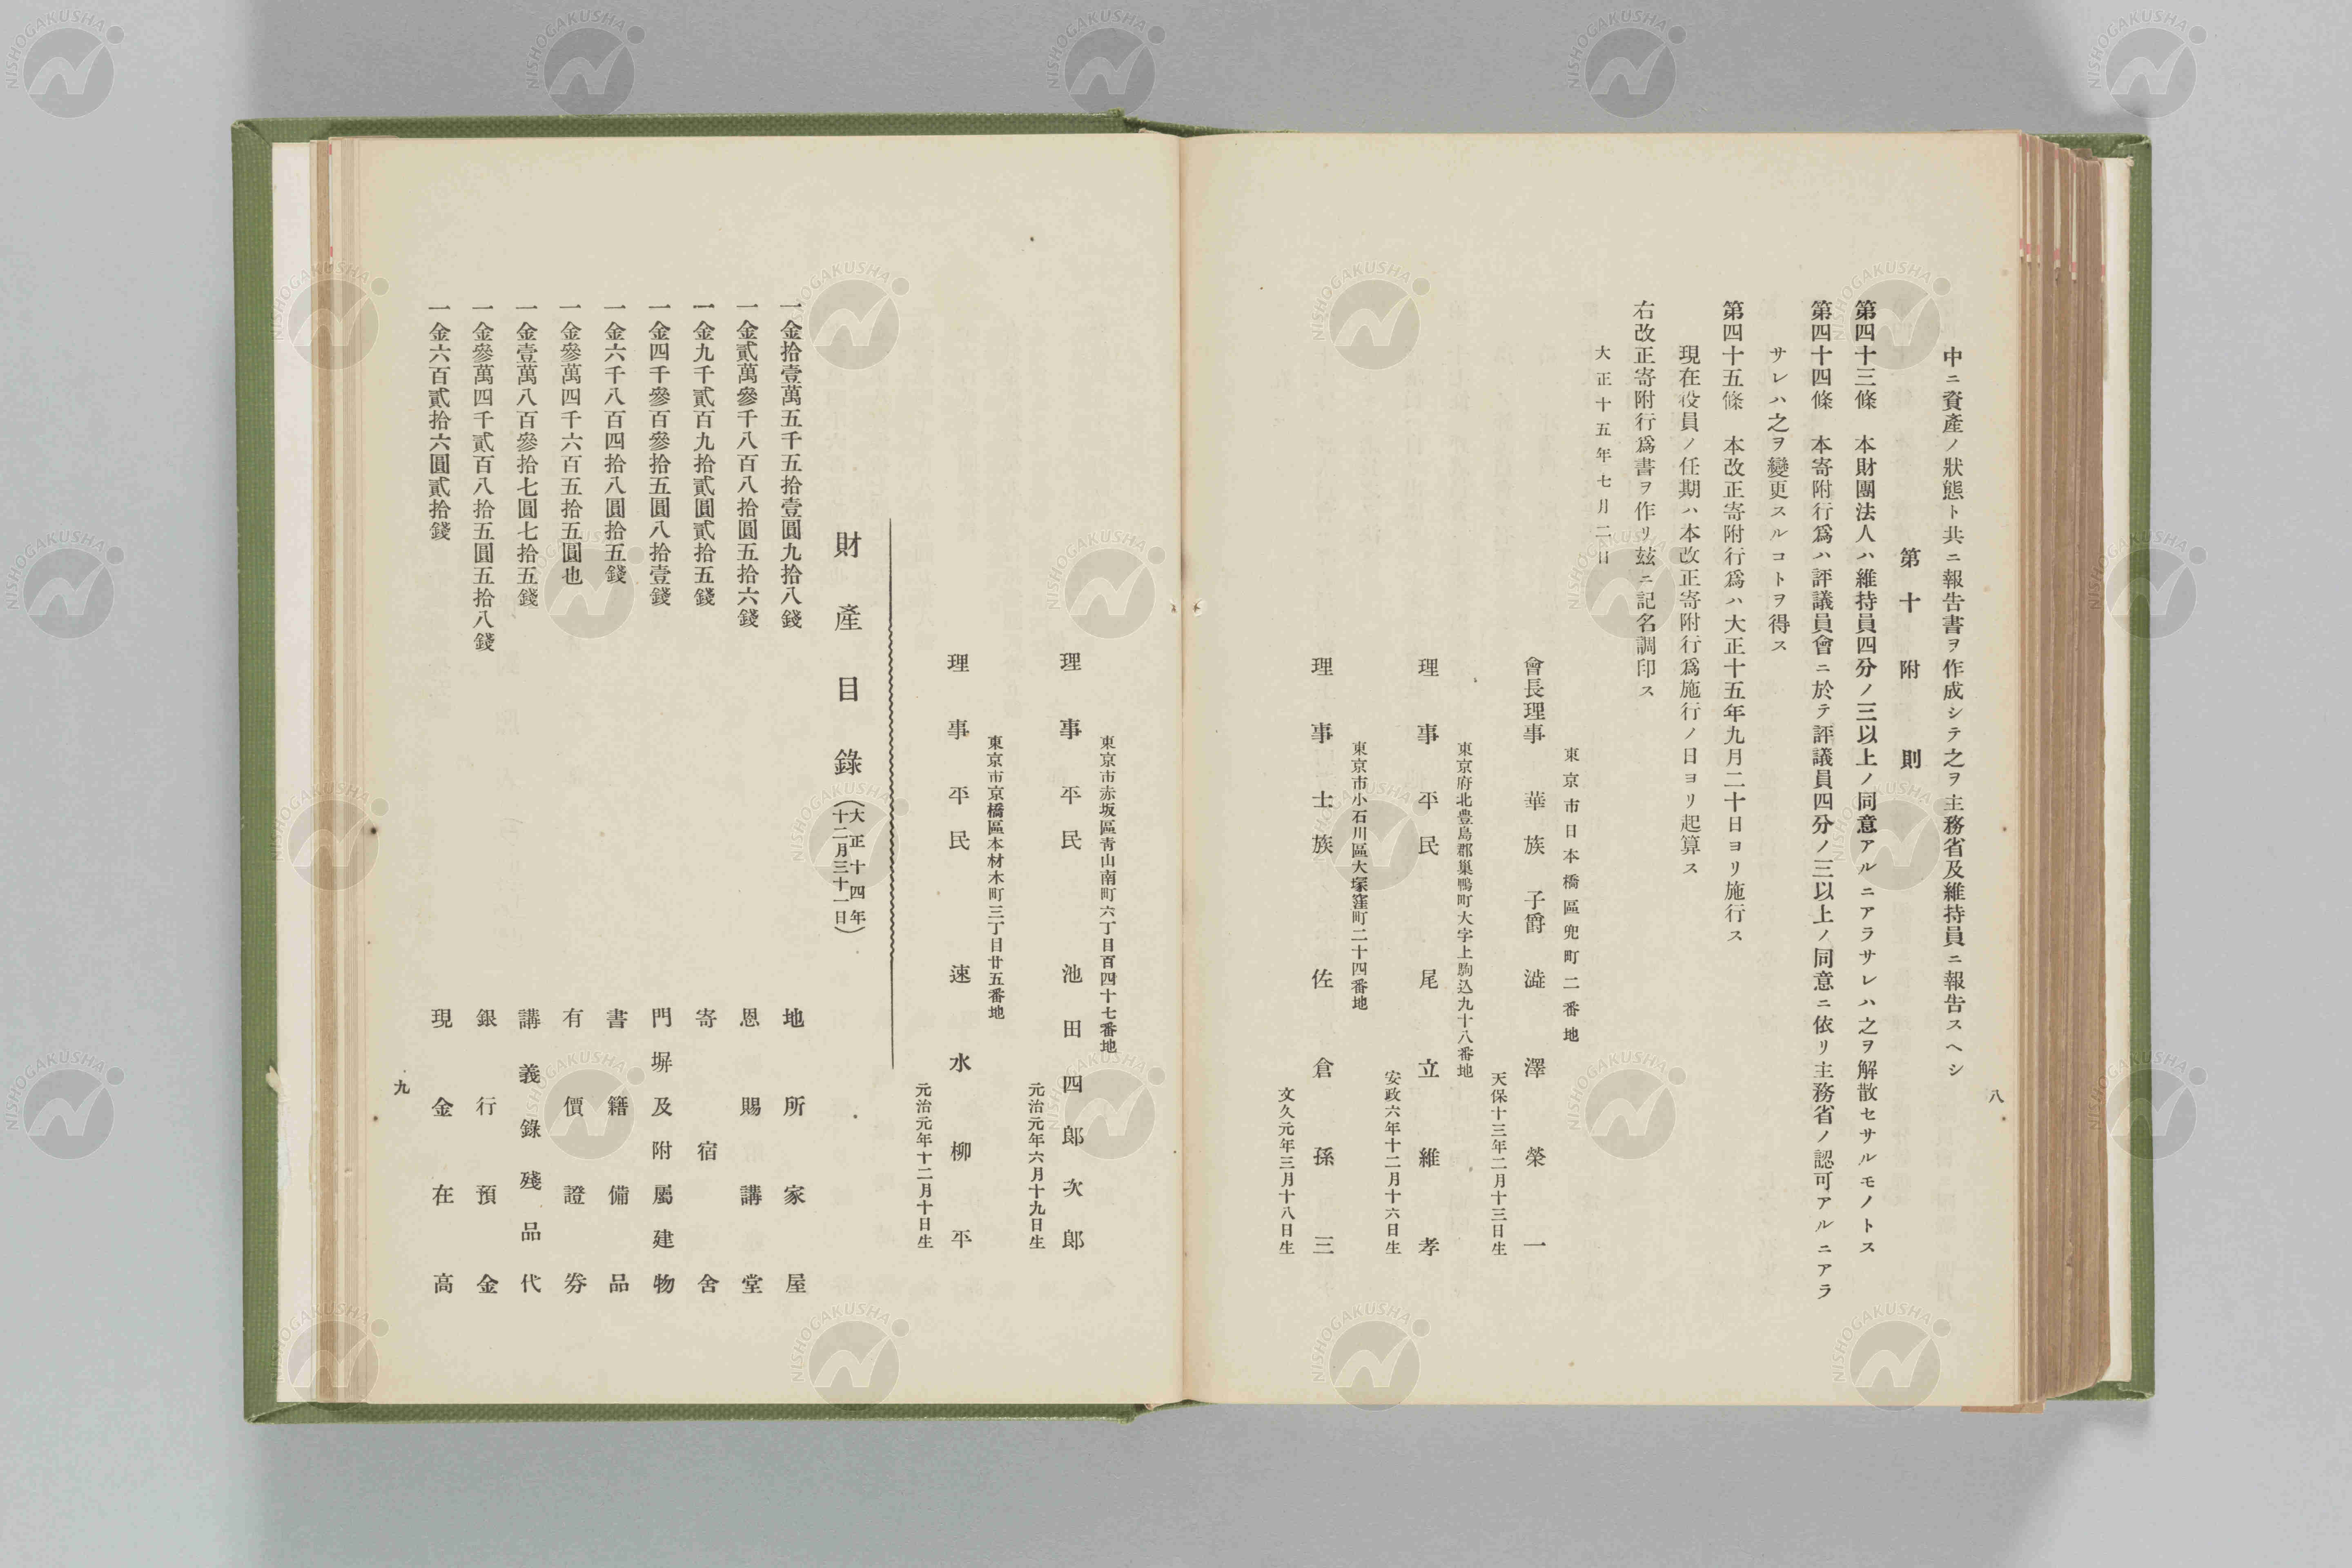 八
中ニ資產ノ狀態ト共ニ報告書ヲ作成シテ之ヲ主務省及維持員ニ報告スヘシ
第十 附則
第四十三條 本財團法人ハ維持員四分ノ三以上ノ同意アルニアラサレハ之ヲ解散セサルモノトス
第四十四條 本寄附行爲ハ評議員會ニ於テ評議員四分ノ三以上ノ同意ニ依リ主務省ノ認可アルニアラ
サレハ之ヲ變更スルコトヲ得ス
第四十五條 本改正寄附行爲ハ大正十五年九月二十日ヨリ施行ス
現在役員ノ任期ハ本改正寄附行爲施行ノ日ヨリ起算ス
右改正寄附行爲書ヲ作リ玆ニ記名調印ス
大正十五年七月二日
東京市日本橋區兜町二番地
會長理事 華族 子爵 澁澤榮一
天保十三年二月十三日生
東京府北豊島郡巢鴨町大字上駒込九十八番地
理事 平民 尾立維孝
安政六年十二月十六日生
東京市小石川區大塚窪町二十四番地
理事 士族 佐倉孫三
文久元年三月十八日生
東京市赤坂區靑山南町六丁目百四十七番地
理事 平民 池田四郎次郎
元治元年六月十九日生
東京市京橋區本材木町三丁目廿五番地
理事 平民 速水柳平
元治元年十二月十日生
財產目錄(大正十四年
十二月三十一日)
一金拾壹萬五千五拾壹圓九拾八錢 地所家屋
一金貳萬參千八百八拾圓五拾六錢 恩賜講堂
一金九千貳百九拾貳圓貳拾五錢 寄宿舍
一金四千參百參拾五圓八拾壹錢 門塀及附屬建物
一金六千八百四拾八圓拾五錢 書籍備品
一金參萬四千六百五拾五圓也 有價證劵
一金壹萬八百參拾七圓七拾五錢 講義錄殘品代
一金參萬四千貳百八拾五圓五拾八錢 銀行預金
一金六百貳拾六圓貳拾錢 現金在高
九
NISHOGAKUSHA